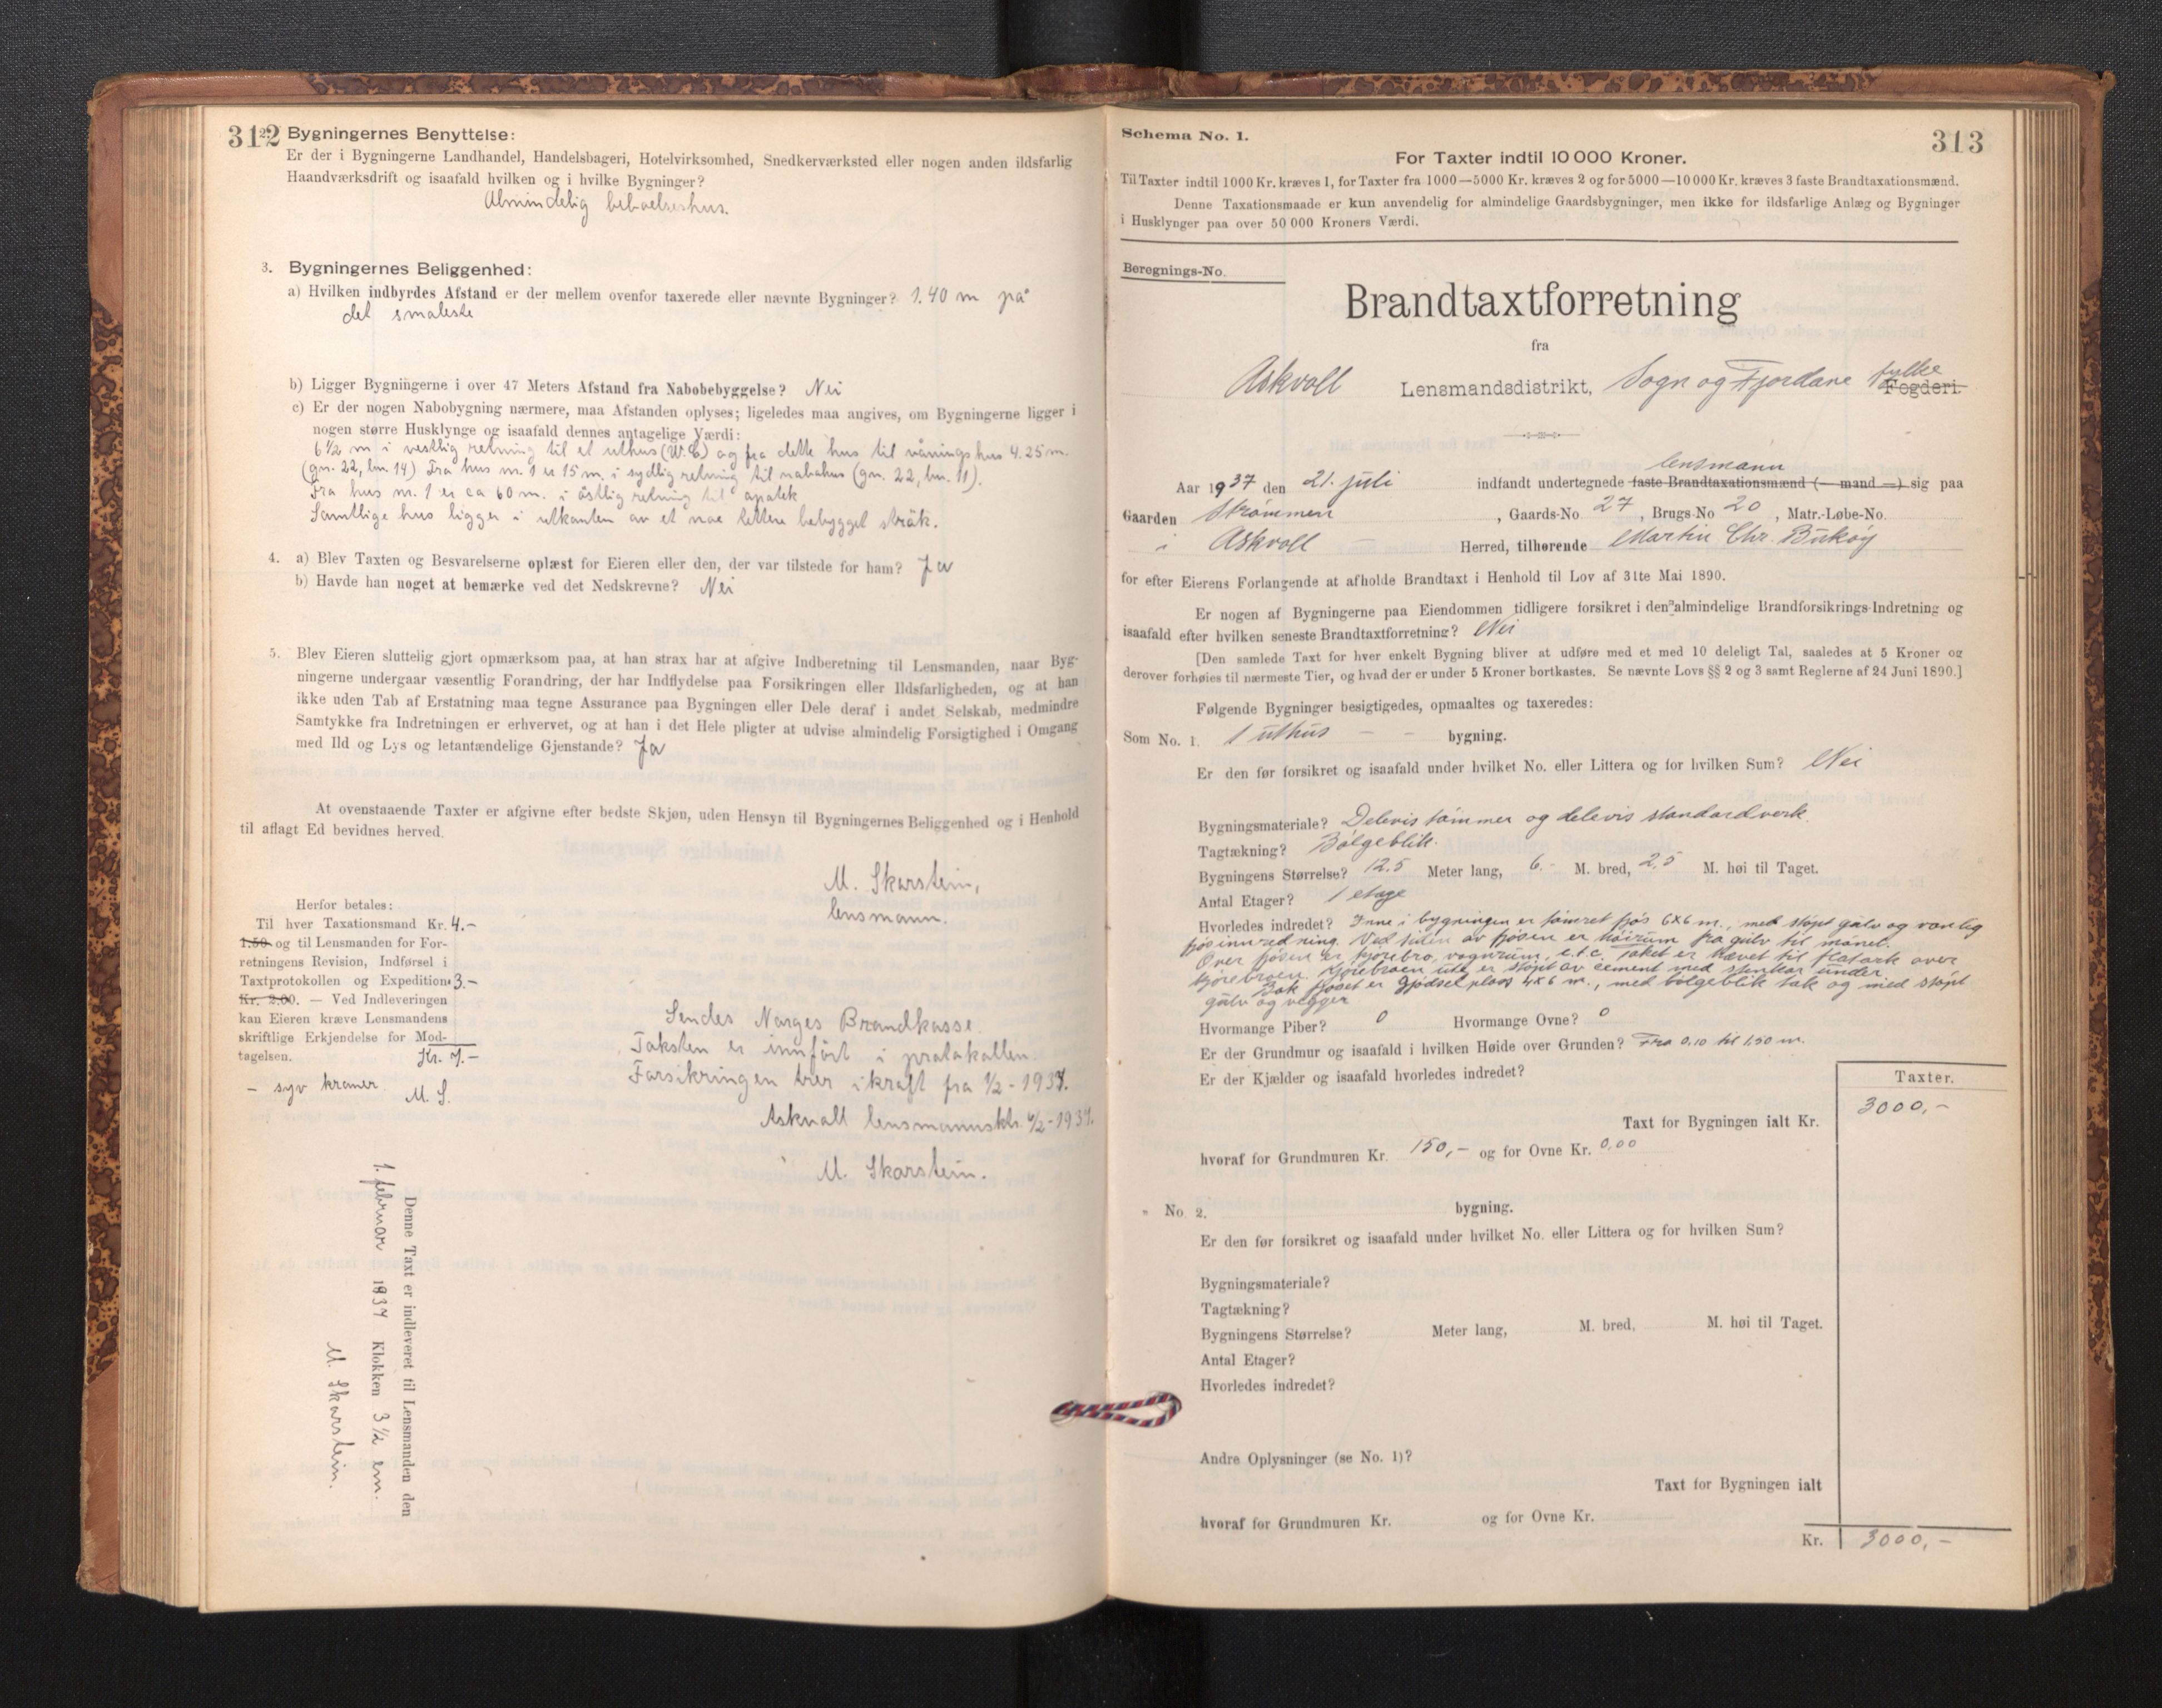 312
2. Bygningernes Benyttelse:
Er der i Bygningerne Landhandel, Handelsbageri, Hotelvirksomhed, Snedkerværksted eller nogen anden ildsfarlig
Haandværksdrift og isaafald hvilken og i hvilke Bygninger?
Almindelig beboelseshus.
3. Bygningernes Beliggenhed:
a) Hvilken indbyrdes Afstand er der mellem ovenfor taxerede eller nævnte Bygninger? 1.40 m på
det smaleste
b) Ligger Bygningerne i over 47 Meters Afstand fra Nabobebyggelse? Nei
c) Er der nogen Nabobygning nærmere, maa Afstanden oplyses; ligeledes maa angives, om Bygningerne ligger i
nogen større Husklynge og isaafald dennes antagelige Værdi:
6½ m i vestlig retning til et uthus (W.C) og fra dette hus til våningshus 4.25 m.
(gn. 22, bn. 14) Fra hus nr. 1 er 15 m. i sydlig retning til nabohus (gn. 22, bn. 11).
Fra hus nr. 1 er ca 60 m. i östlig retning til apotek
Samtlige hus ligger i utkanten av et noe tettere bebygget strøk.
4. a) Blev Taxten og Besvarelserne oplæst for Eieren eller den, der var tilstede for ham? Ja
b) Havde han noget at bemærke ved det Nedskrevne? Nei
5. Blev Eieren sluttelig gjort opmærksom paa, at han strax har at afgive Indberetning til Lensmanden, naar Byg-
ningerne undergaar væsentlig Forandring, der har Indflydelse paa Forsikringen eller Ildsfarligheden, og at han
ikke uden Tab af Erstatning maa tegne Assurance paa Bygningen eller Dele deraf i andet Selskab, medmindre
Samtykke fra Indretningen er erhvervet, og at han i det Hele pligter at udvise almindelig Forsigtighed i Omgang
med Ild og Lys og letantændelige Gjenstande? Ja
At ovenstaaende Taxter er afgivne efter bedste Skjøn, uden Hensyn til Bygningernes Beliggenhed og i Henhold
til aflagt Ed bevidnes herved.
M. Skarstein,
lensmann.
Herfor betales:
Til hver Taxationsmand Kr. 4.-
1.50 og til Lensmanden for For-
retningens Revision, Indførsel i
Taxtprotokollen og Expedition 3.-
Kr. 2.00. — Ved Indleveringen
kan Eieren kræve Lensmandens
skriftlige Erkjendelse for Mod-
tagelsen. Kr. 7.-
- syv kroner M. S.
Sendes Norges Brandkasse.
Taksten er innført i protokollen.
Forsikringen trer i kraft fra 1/2 - 1937.
Askvoll lensmannsktr. 6/2-1937.
M. Skarstein.
Denne Taxt er indleveret til Lensmanden den
1. februar 1937 Klokken 3 1/2 em.
M. Skarstein.
Schema No. 1.
313
For Taxter indtil 10 000 Kroner.
Til Taxter indtil 1000 Kr. kræves 1, for Taxter fra 1000—5000 Kr. kræves 2 og for 5000—10 000 Kr. kræves 3 faste Brandtaxationsmænd.
Denne Taxationsmaade er kun anvendelig for almindelige Gaardsbygninger, men ikke for ildsfarlige Anlæg og Bygninger
i Husklynger paa over 50 000 Kroners Værdi.
Beregnings-No.
Brandtaxtforretning
fra
Askvoll Lensmandsdistrikt, Sogn og Fjordane fylke Fogderi.
lensmann
Aar 1937 den 21. juli indfandt undertegnede faste Brandtaxationsmænd (— mand —) sig paa
Gaarden Strømmen, Gaards-No 27, Brugs-No 20, Matr.-Løbe-No.
i Askvoll — Herred, tilhørende Martin Chr. Bukøy
for efter Eierens Forlangende at afholde Brandtaxt i Henhold til Lov af 31te Mai 1890.
Er nogen af Bygningerne paa Eiendommen tidligere forsikret i den almindelige Brandforsikrings-Indretning og
isaafald efter hvilken seneste Brandtaxtforretning? Nei
[Den samlede Taxt for hver enkelt Bygning bliver at udføre med et med 10 deleligt Tal, saaledes at 5 Kroner og
derover forhøies til nærmeste Tier, og hvad der er under 5 Kroner bortkastes. Se nævnte Lovs §§ 2 og 3 samt Reglerne af 24 Juni 1890.]
Følgende Bygninger besigtigedes, opmaaltes og taxeredes:
Som No. 1. 1 uthus — - bygning.
Er den før forsikret og isaafald under hvilket No. eller Littera og for hvilken Sum? Nei
Bygningsmateriale? Delevis tømmer og delevis standardverk.
Tagtækning? Bølgeblik.
Bygningens Størrelse? 12.5 Meter lang, 6.- M. bred, 2,5 M. høi til Taget.
Antal Etager? 1 etage
Hvorledes indredet? Inne i bygningen er tømret fjøs 6x6 m., med støpt gulv og vanlig
fjøsinnredning. Ved siden av fjøsen er høirum fra gulv til mønet.
Over fjøsen er kjørebro, vognrum, e.t.c. Taket er hævet til flatark over
kjørebroen. Kjørebroen ute er støpt av cement med stenkar under.
Bak fjøset er gjødselplass 4x6 m., med bølgeblik tak og med støpt
gulv og vegger
Hvormange Piber? 0 Hvormange Ovne? 0
Er der Grundmur og isaafald i hvilken Høide over Grunden? Fra 0.10 til 1.50 m.
Er der Kjælder og isaafald hvorledes indredet?
Taxter.
Taxt for Bygningen ialt Kr. 3000,-
hvoraf for Grundmuren Kr. 150,- og for Ovne Kr. 0,00
" No. 2. bygning.
Er den før forsikret og isaafald under hvilket No. eller Littera og for hvilken Sum?
Bygningsmateriale?
Tagtækning?
Bygningens Størrelse? Meter lang, M. bred, M. høi til Taget.
Antal Etager?
Hvorledes indredet?
Andre Oplysninger (se No. 1)?
Taxt for Bygningen ialt
hvoraf for Grundmuren Kr. og for Ovne Kr.
Kr. 3000,-